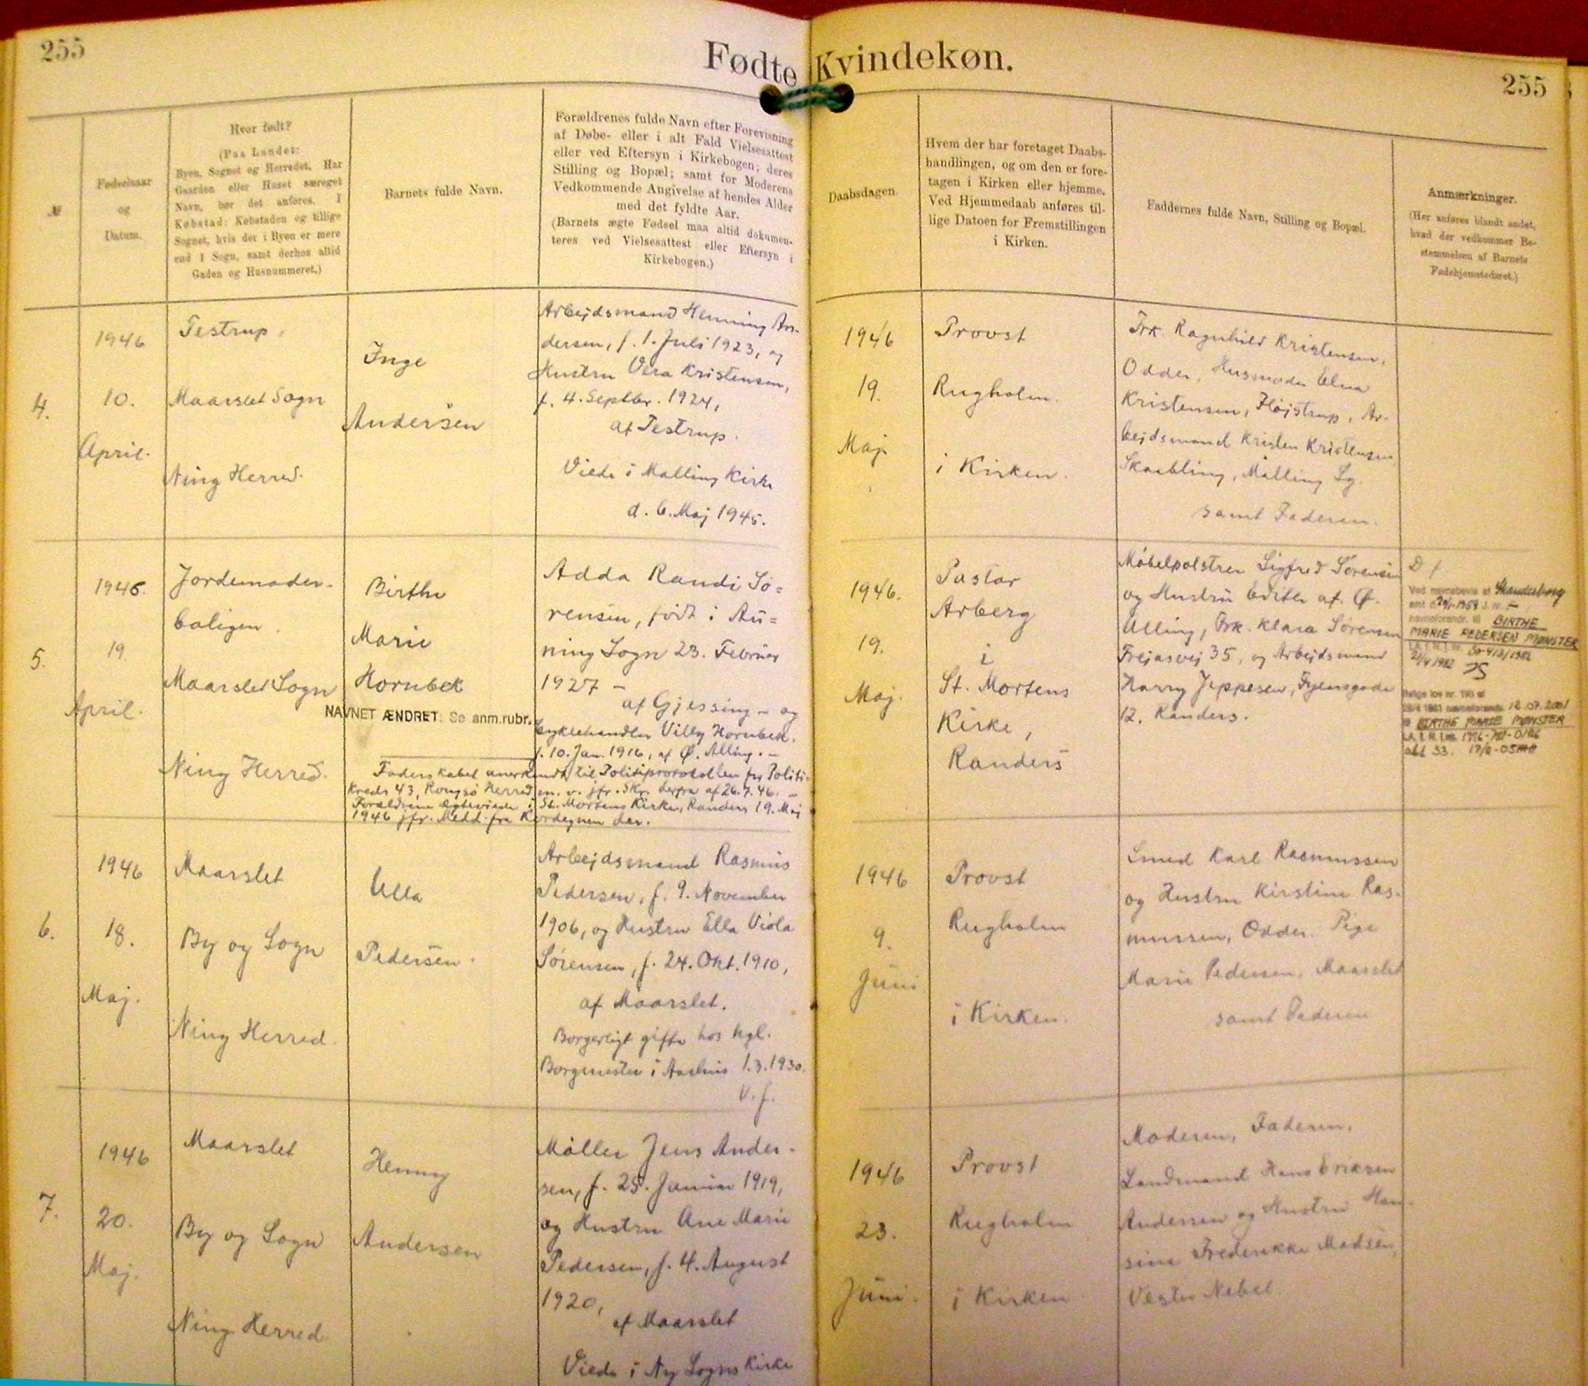 255
Fødte Kvindekøn.
255
№
Fødselsaar
og
Datum.
Hvor født?
(Paa Landet:
Byen, Sognet og Herredet. Har
Gaarden eller Huset særeget
Navn, bør det anføres. I
Købstad: Købstaden og tillige
Sognet, hvis der i Byen er mere
end 1 Sogn, samt derhos altid
Gaden og Husnummeret.)
Barnets fulde Navn.
Forældrenes fulde Navn efter Forevisning
af Døbe- eller i alt Fald Vielsesattest
eller ved Eftersyn i Kirkebogen; deres
Stilling og Bopæl; samt for Moderens
Vedkommende Angivelse af hendes Alder
med det fyldte Aar.
(Barnets ægte Fødsel maa altid dokumen-
teres ved Vielsesattest eller Eftersyn i
Kirkebogen.)
Daabsdagen.
Hvem der har foretaget Daabs-
handlingen, og om den er fore-
tagen i Kirken eller hjemme.
Ved Hjemmedaab anføres til-
lige Datoen for Fremstillingen
i Kirken.
Faddernes fulde Navn, Stilling og Bopæl.
Anmærkninger.
(Her anføres blandt andet,
hvad der vedkommer Be-
stemmelsen af Barnets
Fødehjemstedsret.)
4.
1946
10.
April.
Testrup,
Maarslet Sogn
Ning Herred.
Inge
Andersen
Arbejdsmand Henning An-
dersen, f. 1. Juli 1923, og
Hustru Vera Kristensen,
f. 4. Septbr. 1924,
af Testrup.
Viede i Malling Kirke
d. 6. Maj 1945.
1946
19.
Maj
Provst
Rugholm.
i Kirken.
Frk. Ragnhild Kristensen,
Odder, Husmoder Elna
Kristensen, Højstrup, Ar-
bejdsmand Kristen Kristensen
Skaebling, Malling Sg.
samt Faderen.
5.
1946.
19
April.
Jordemoder-
boligen.
Maarslet Sogn
Ning Herred.
Birthe
Marie
Hornbek
NAVNET ÆNDRET: Se anm.rubr.
Adda Randi Sø-
rensen, født i Au-
ning Sogn 23. Februar
1927 –
af Gjessing – og
Cyklehandler Villy Hornbek.
f. 10. Jan. 1916, af Ø. Alling. –
Faderskabet anerkendt til Politiprotokollen for Politi-
kreds 43, Rougsø Herred m. v. jfr. Skr. derfra af 26.7.46. –
Forældrene ægteviede i St. Mortens Kirke, Randers 19. Maj
1946 jfr. Medd. fra Kordegnen der.
1946.
19.
Maj.
Pastor
Arberg
i
St. Mortens
Kirke,
Randers
Møbelpolstrer Sigfred Sørensen
og Hustru Edith af Ø.
Alling, Frk. Klara Sørensen
Frejasvej 35, og Arbejdsmand
Harry Jeppesen, Fyensgade
12. Randers.
D f
Ved navnebevis af Skanderborg
navneforandr. til BIRTHE
MARIE PEDERSEN MØNSTER
21/4 1982
navneforandr. 12.07.2001
til BIRTHE MARIE MØNSTER
6.
1946
18.
Maj.
Maarslet
By og Sogn
Ning Herred.
Ulla
Pedersen.
Arbejdsmand Rasmus
Pedersen, f. 9. November
1906, og Hustru Ella Viola
Sørensen, f. 24. Okt. 1910,
af Maarslet.
Borgerligt gifte hos kgl.
Borgmester i Aarhus 1.3.1930.
V. f.
1946
9.
Juni
Provst
Rugholm
i Kirken.
Smed Karl Rasmussen
og Hustru Kirstine Ras-
mussen, Odder. Pige
Marie Pedersen, Maarslet
samt Faderen
7.
1946
20.
Maj.
Maarslet
By og Sogn
Ning Herred
Henny
Andersen
Møller Jens Ander-
sen, f. 25. Januar 1919,
og Hustru Ane Marie
Pedersen, f. 4. August
1920,
af Maarslet
Viede i Ny Sogns Kirke
1946
23.
Juni.
Provst
Rugholm
i Kirken
Moderen, Faderen,
Landmand Hans Eriksen
Andersen og Hustru Han-
sine Frederikke Madsen,
Vester Nebel